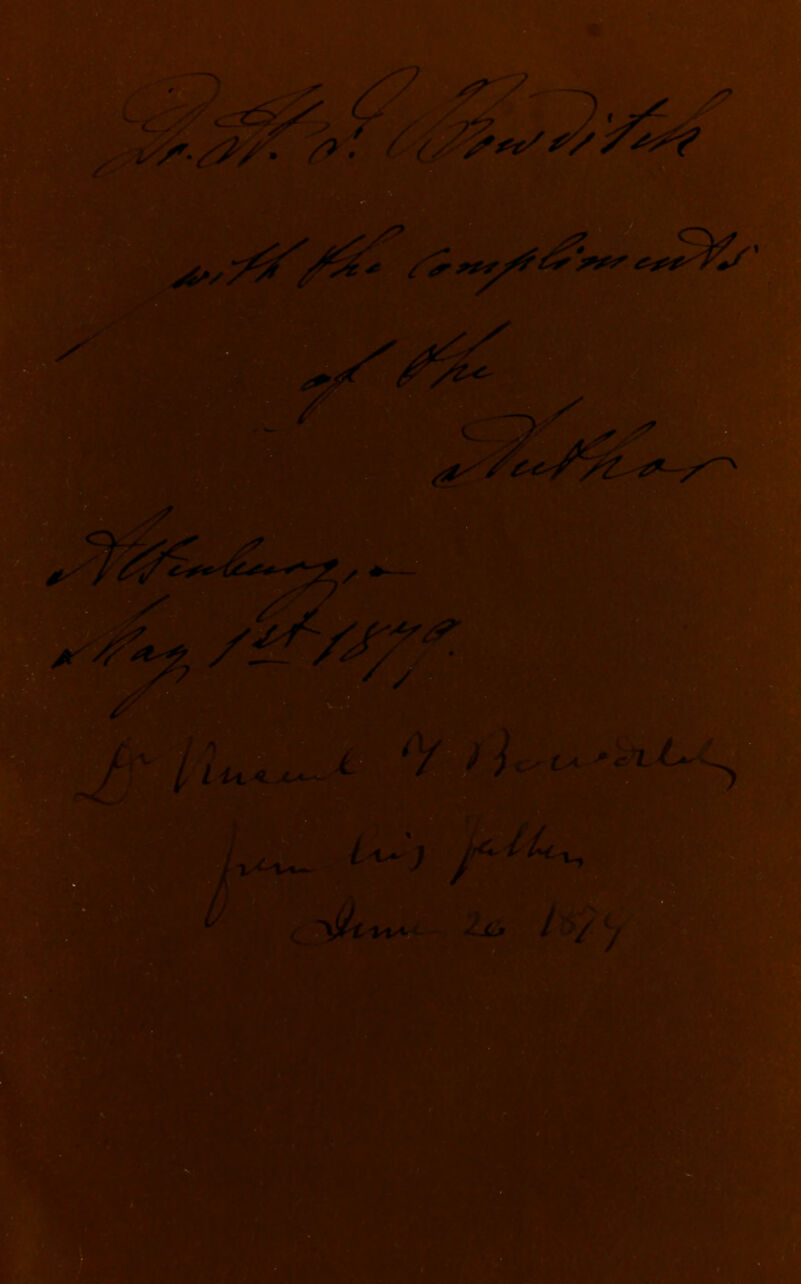 Dr. H. I. Bowditch
with the compliments
of the
Author
Altenburg, -
May 1st 1879.
Dr Vincent Y Bowditch
from his father
June 26 1879